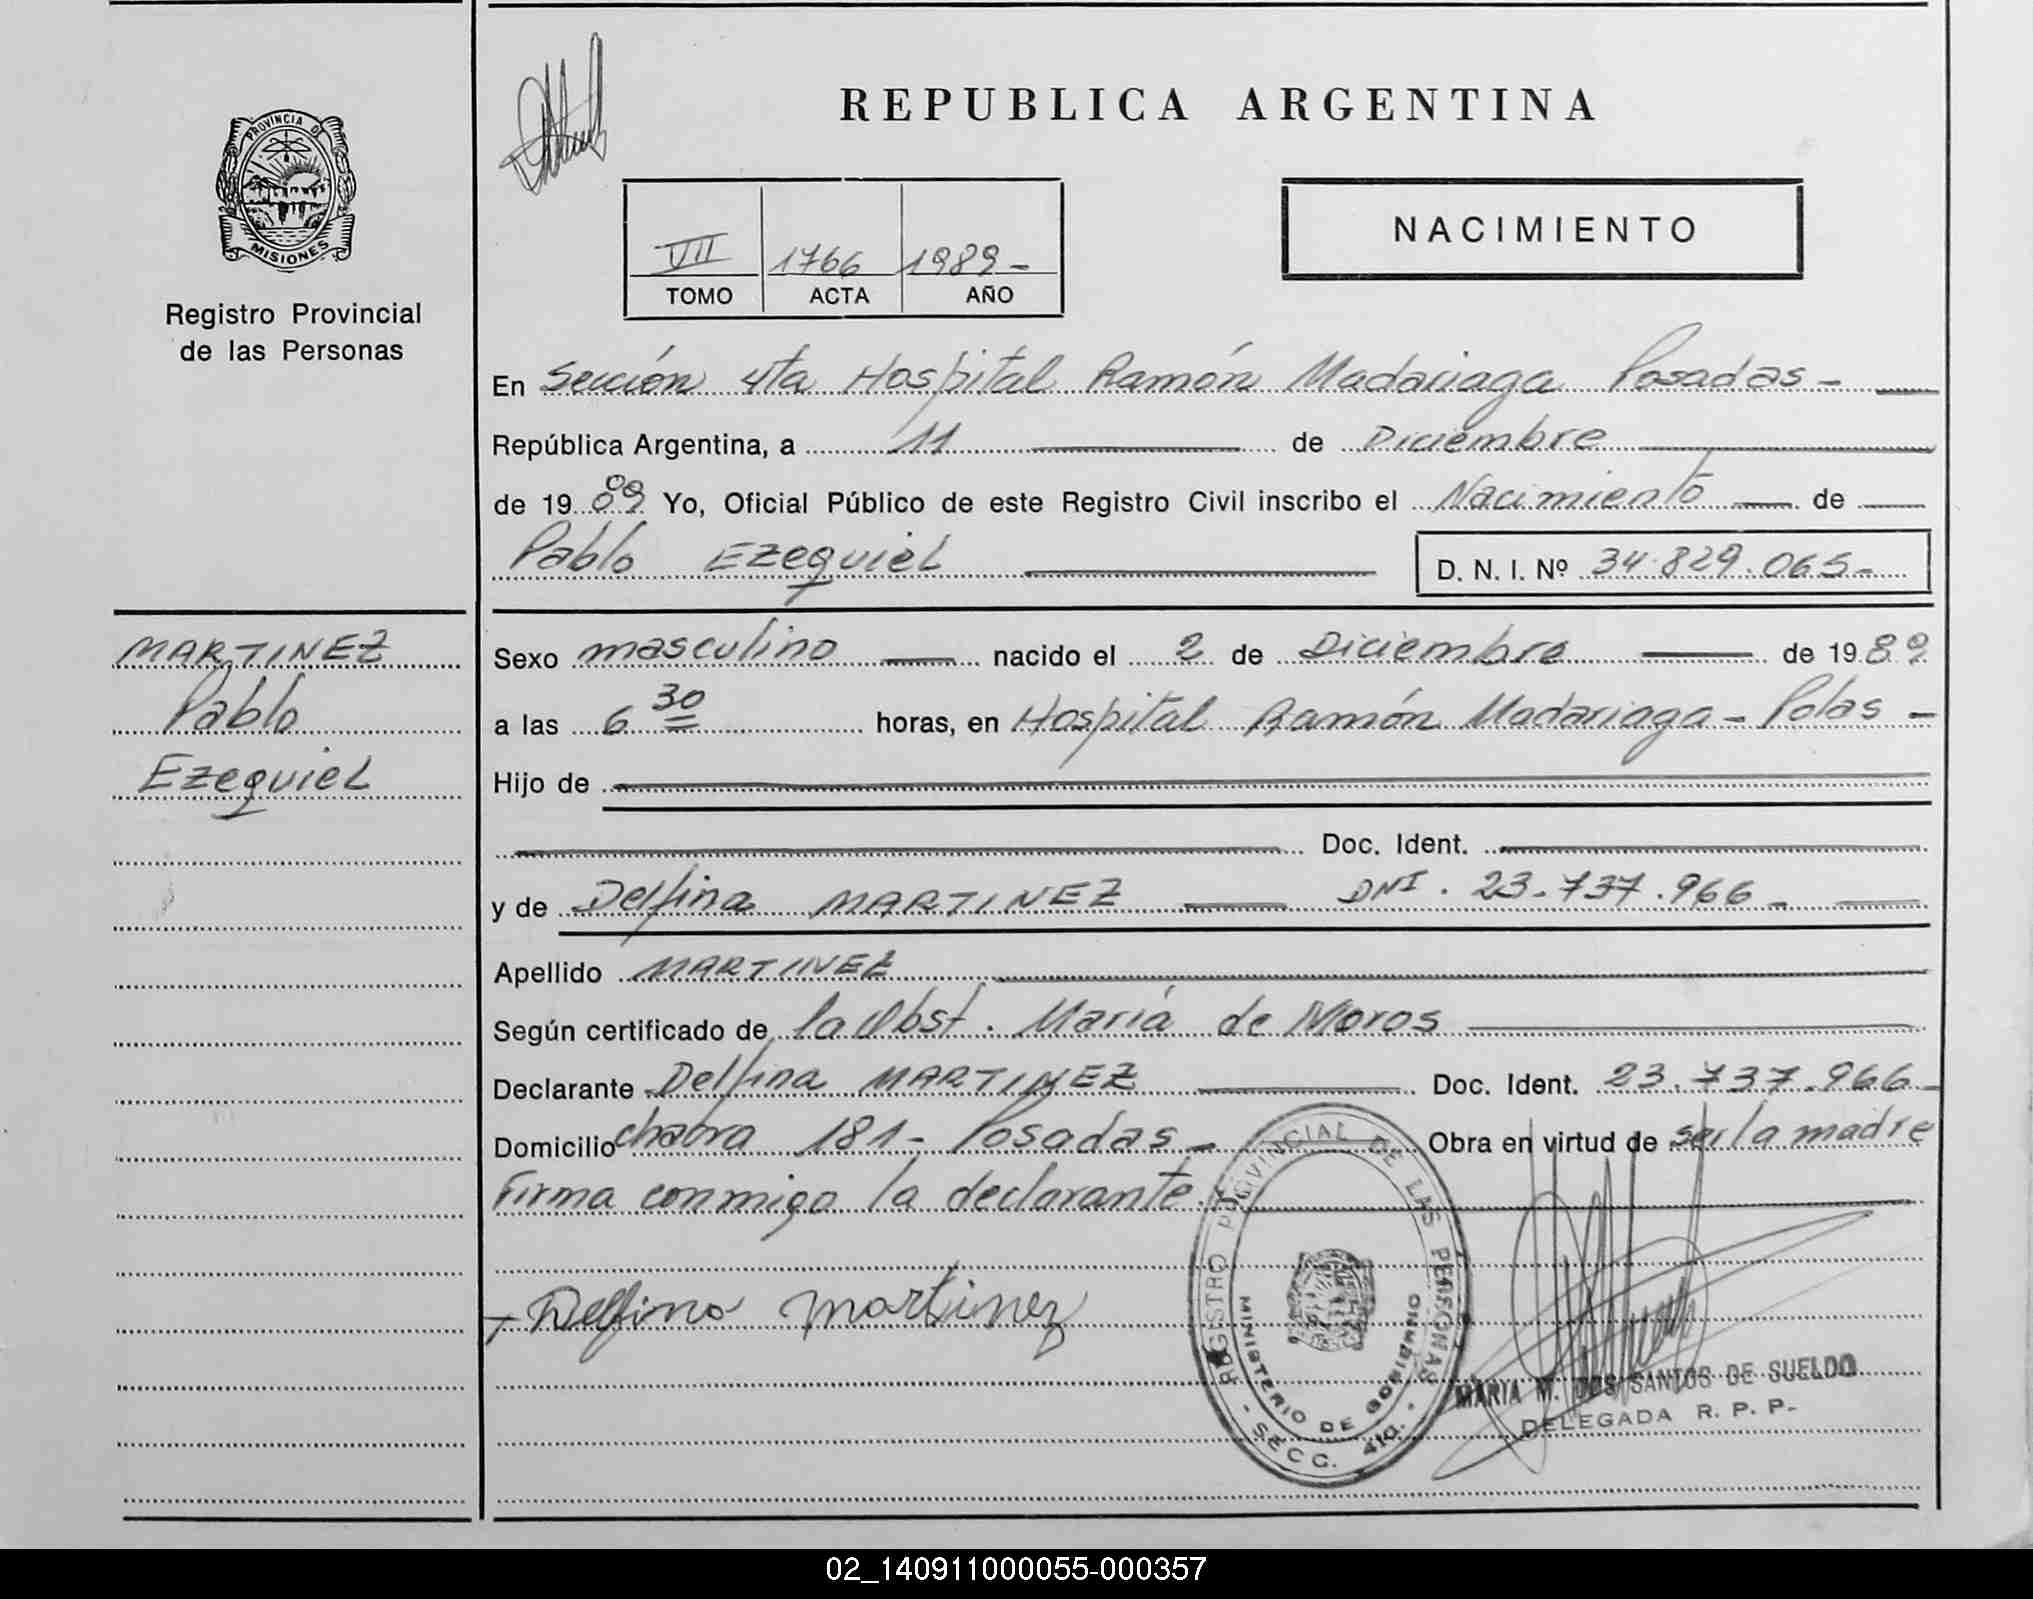 REPUBLICA ARGENTINA
PROVINCIA DE
MISIONES
Registro Provincial
de las Personas
VII 1766 1989-
TOMO ACTA AÑO
NACIMIENTO
En Sección 4ta Hospital Ramón Madariaga Posadas-
República Argentina, a 11 de Diciembre
de 19 89 Yo, Oficial Público de este Registro Civil inscribo el Nacimiento de
Pablo Ezequiel D. N. I. Nº 34.829.065-
MARTINEZ
Pablo
Ezequiel
Sexo masculino nacido el 2 de Diciembre de 1989
a las 6 30 horas, en Hospital Ramón Madariaga - Pdas -
Hijo de
Doc. Ident.
y de Delfina MARTINEZ DNI. 23.737.966-
Apellido MARTINEZ
Según certificado de la Obst. María de Moros
Declarante Delfina MARTINEZ Doc. Ident. 23.737.966-
Domicilio chacra 181- Posadas- Obra en virtud de ser la madre
Firma conmigo la declarante.
Delfina Martinez
REGISTRO PROVINCIAL DE LAS PERSONAS
MINISTERIO DE GOBIERNO
- SECC. 4ta. -
MARIA M. DOS SANTOS DE SUELDO
DELEGADA R. P. P.
02_140911000055-000357